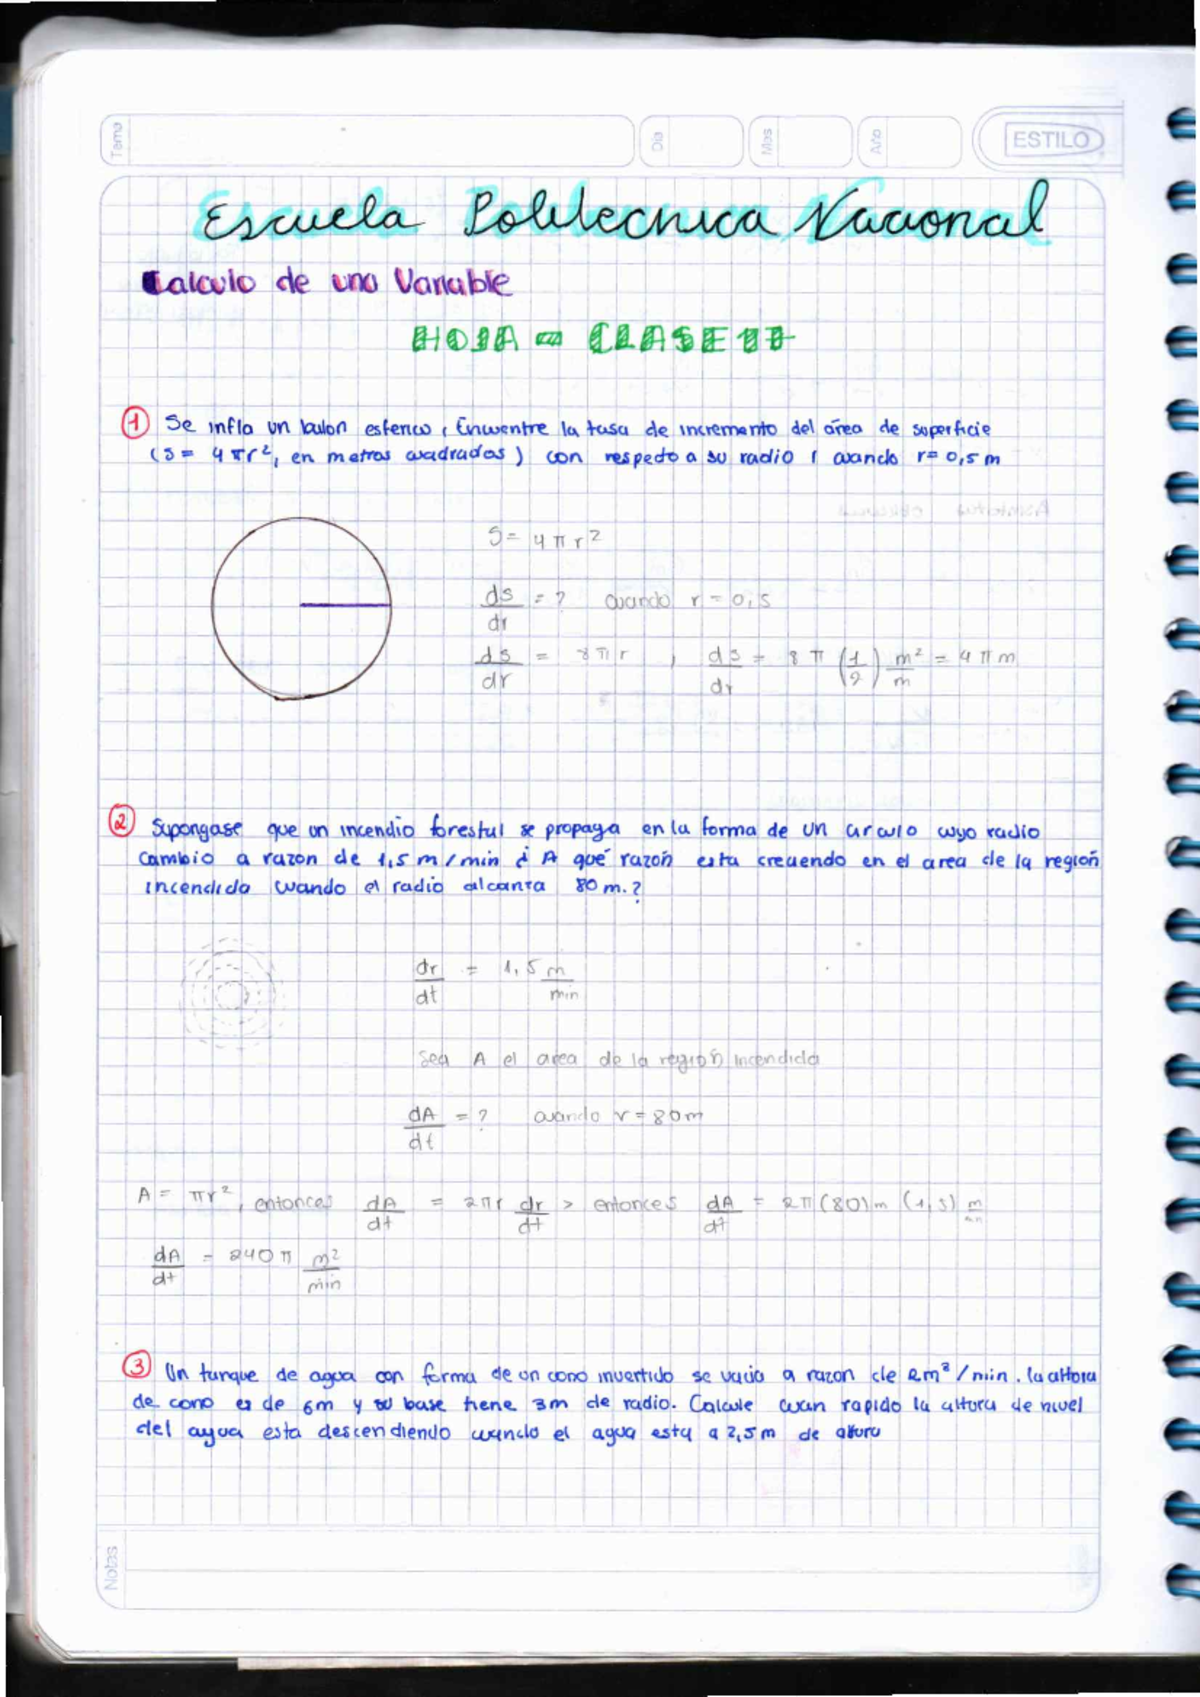 Tema
Día
Mes
Año
ESTILO
Escuela Politecnica Nacional
Calculo de una Variable
HOJA - CLASE 17
1 Se infla un balon esferico, Encuentre la tasa de incremento del área de superficie
(S = 4πr², en metros cuadrados) con respecto a su radio r cuando r= 0,5 m
S= 4πr²
ds/dr = ? cuando r = 0,5
ds/dr = 8πr , ds/dr = 8π (1/2) m²/m = 4πm
2 Supongase que un incendio forestal se propaga en la forma de un circulo cuyo radio
cambio a razon de 1,5 m/min ¿ A qué razón esta creciendo en el area de la región
incendida cuando el radio alcanza 80 m.?
dr/dt = 1,5 m/min
Sea A el area de la región incendida
dA/dt = ? cuando r = 80m
A = πr², entonces dA/dt = 2πr dr/dt > entonces dA/dt = 2π(80)m (1,5) m/min
dA/dt = 240π m²/min
3 Un tanque de agua con forma de un cono invertido se vacia a razon de 2m³/min. la altura
de cono es de 6m y su base tiene 3m de radio. Calcule cuan rapido la altura de nivel
del agua esta descendiendo cuando el agua esta a 2,5m de altura
Notas